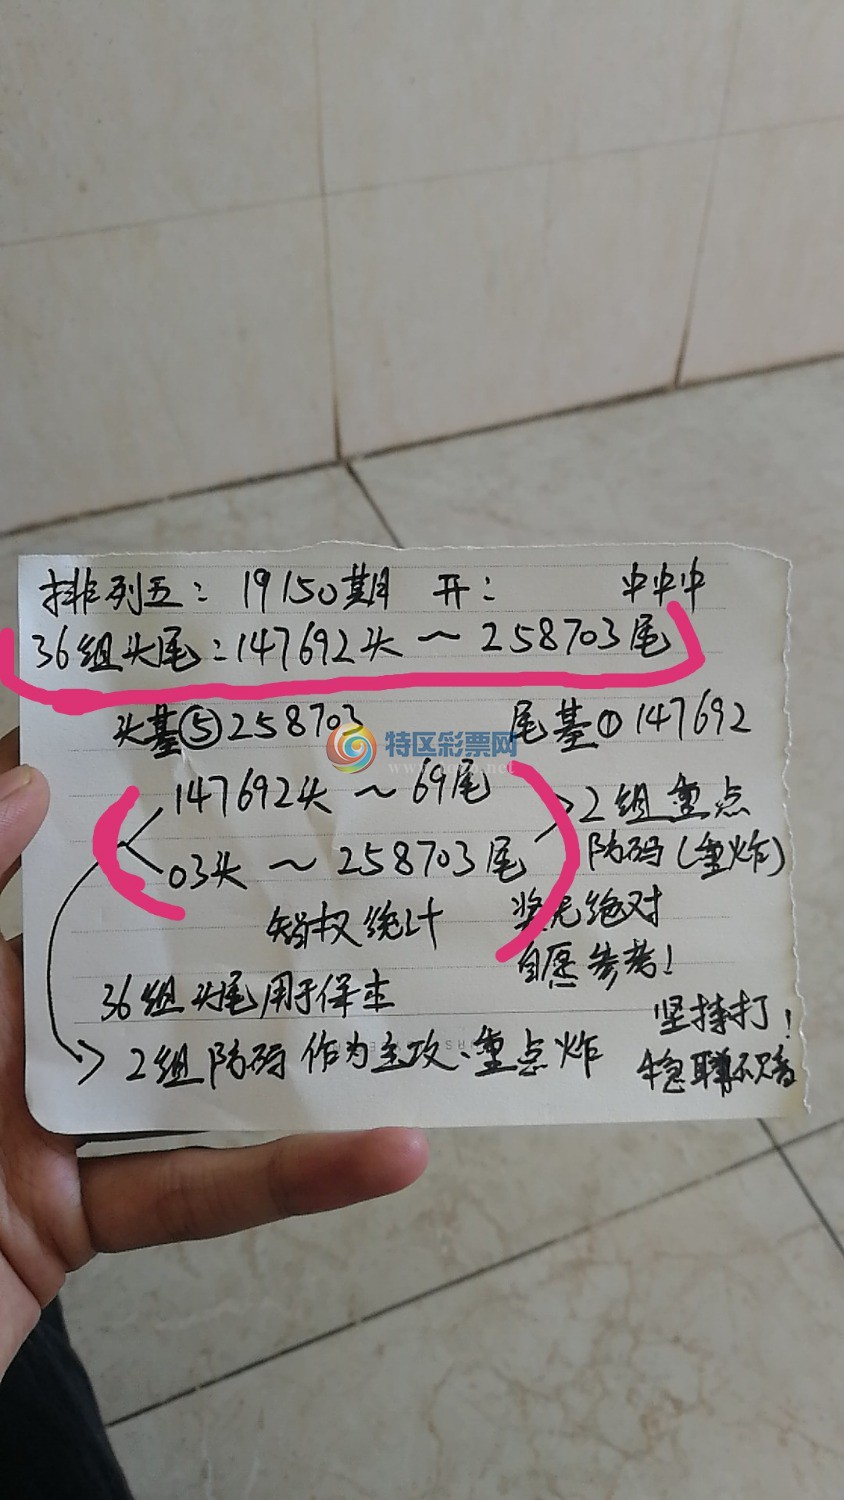 排列五：19150期 开： 中中中
36组头尾：147692头～258703尾
头基⑤258703 尾基①147692
特区彩票网
147692头～69尾
2组重点
03头～258703尾
防码(重炸)
统计
奖无绝对
自愿参考！
36组头尾用于保本
坚持打！
2组防码作为主攻、重点炸